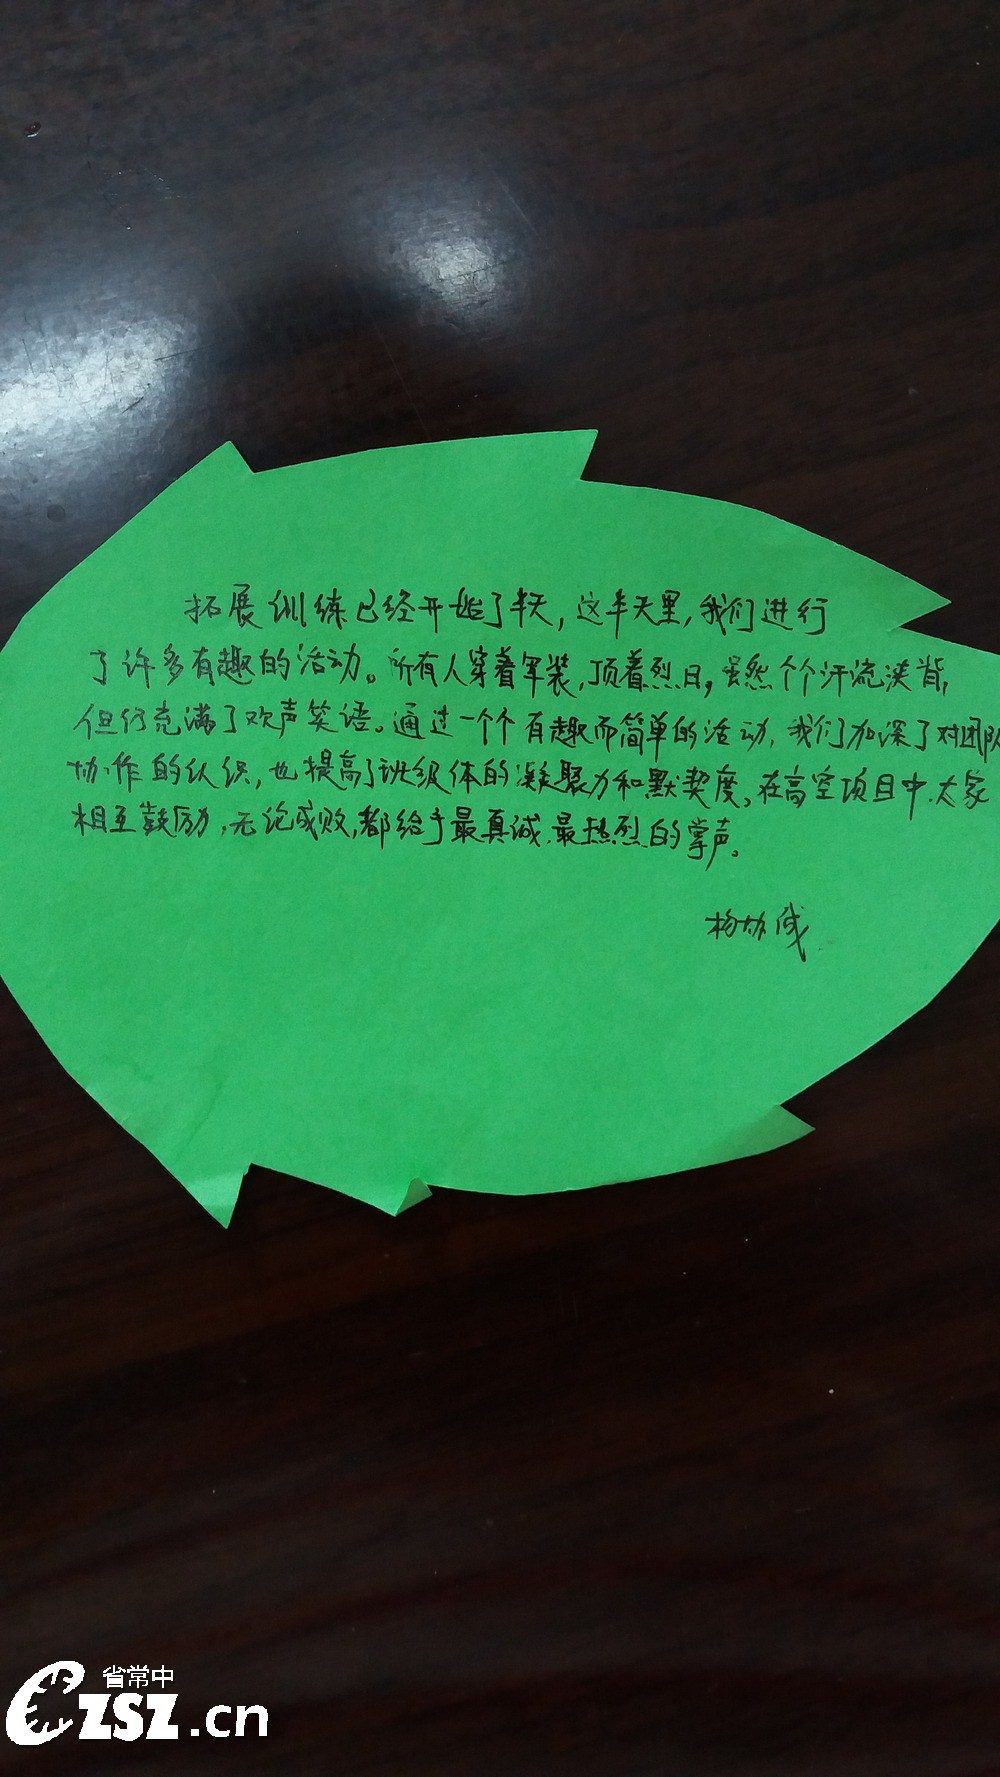 拓展训练已经开始了半天,这半天里,我们进行
了许多有趣的活动。所有人穿着军装,顶着烈日,虽然个个汗流浃背,
但仍充满了欢声笑语。通过一个个有趣而简单的活动,我们加深了对团队
协作的认识,也提高了班级体的凝聚力和默契度。在高空项目中,大家
相互鼓励,无论成败,都给予最真诚、最热烈的掌声。
省常中
CZSZ.cn